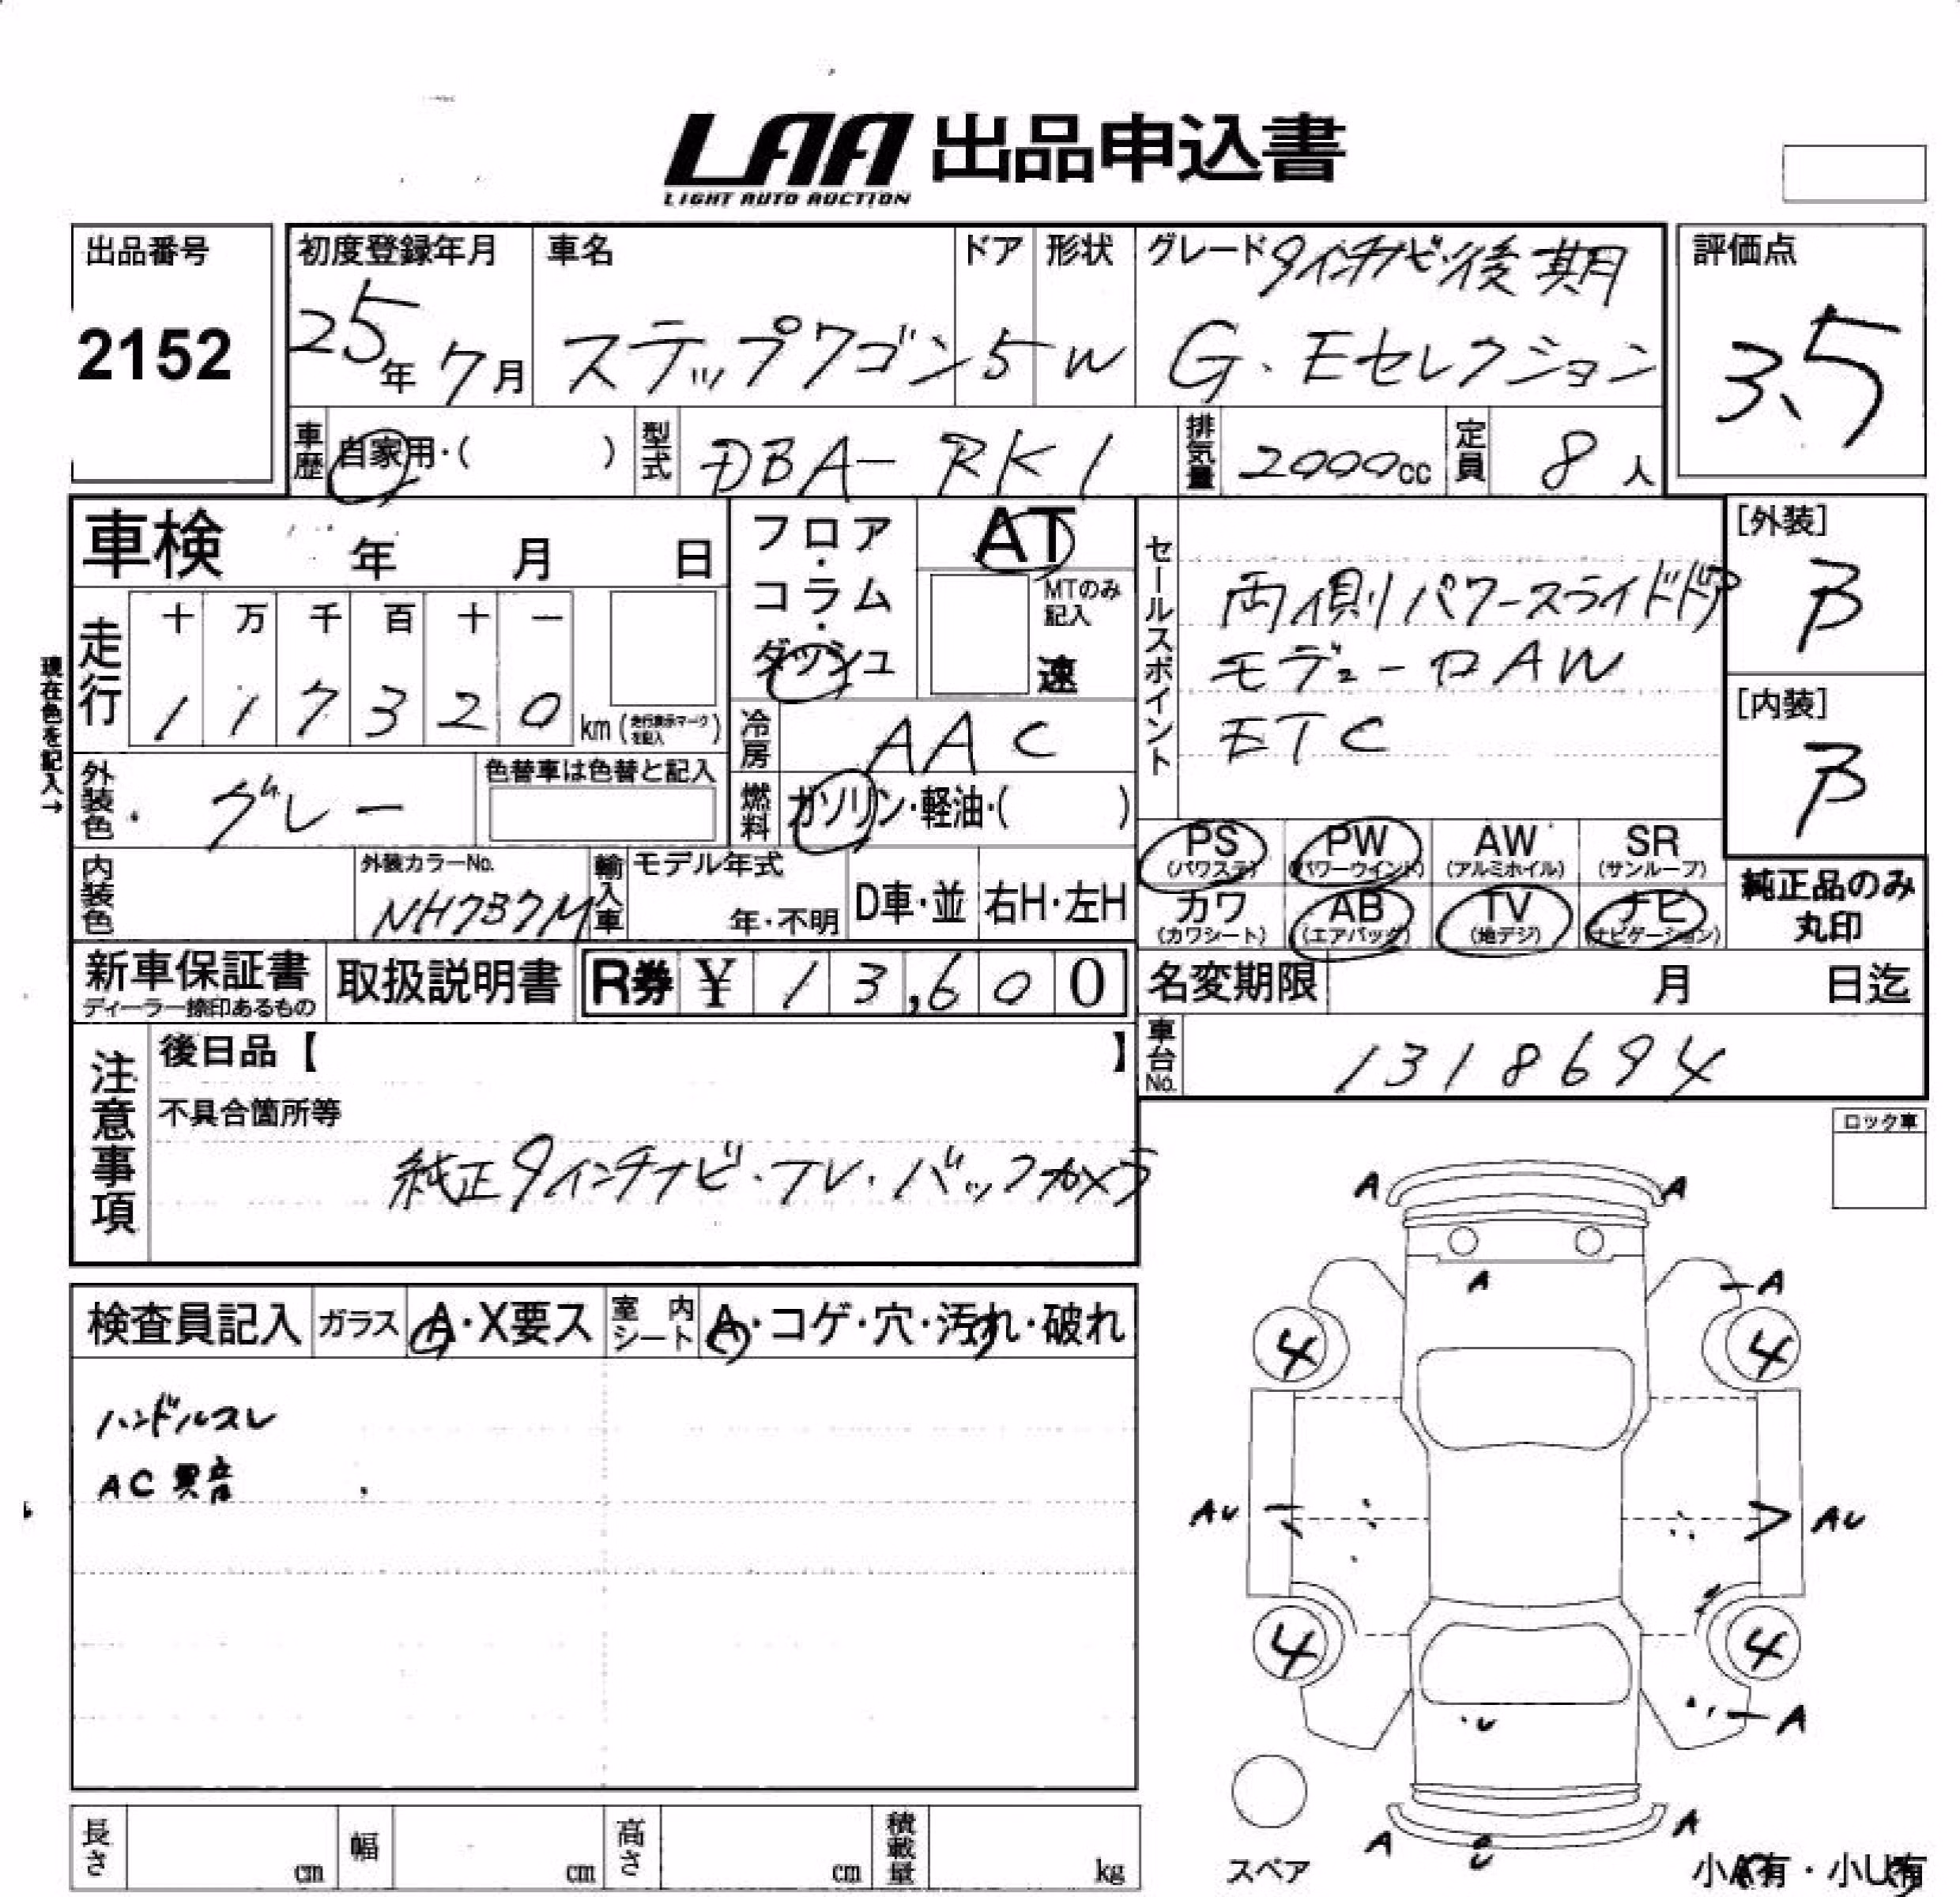 LAA 出品申込書
LIGHT AUTO AUCTION
出品番号
2152
初度登録年月
25年7月
車名
ステップワゴン
ドア
5
形状
W
グレード 9インチナビ・後期
G・Eセレクション
評価点
3.5
車歴
自家用・( )
型式
DBA-RK1
排気量
2000cc
定員
8人
車検 年 月 日
フロア・コラム・ダッシュ
AT
MTのみ記入
速
セールスポイント
両側パワースライドドア
モデューロAW
ETC
[外装]
B
[内装]
B
現在色を記入→
走行
十 万 千 百 十 一
1 1 7 3 2 0 km (走行表示マークを記入)
冷房
AAC
外装色
グレー
色替車は色替と記入
燃料
ガソリン・軽油・( )
PS (パワステ)
PW (パワーウインド)
AW (アルミホイル)
SR (サンルーフ)
カワ (カワシート)
AB (エアバッグ)
TV (地デジ)
ナビ (ナビゲーション)
純正品のみ丸印
内装色
外装カラーNo.
NH737M
輸入車
モデル年式
年・不明
D車・並
右H・左H
新車保証書
ディーラー捺印あるもの
取扱説明書
R券 ¥ 13,600
名変期限 月 日迄
車台No.
1318694
注意事項
後日品【 】
不具合箇所等
純正9インチナビ・TV・バックカメラ
ロック車
検査員記入
ガラス
A・X要ス
室内シート
A・コゲ・穴・汚れ・破れ
ハンドルスレ
AC異音
A A
A A
4 4
AU AU
4 4
U A
A U A
スペア
小A有・小U有
長さ cm
幅 cm
高さ cm
積載量 kg